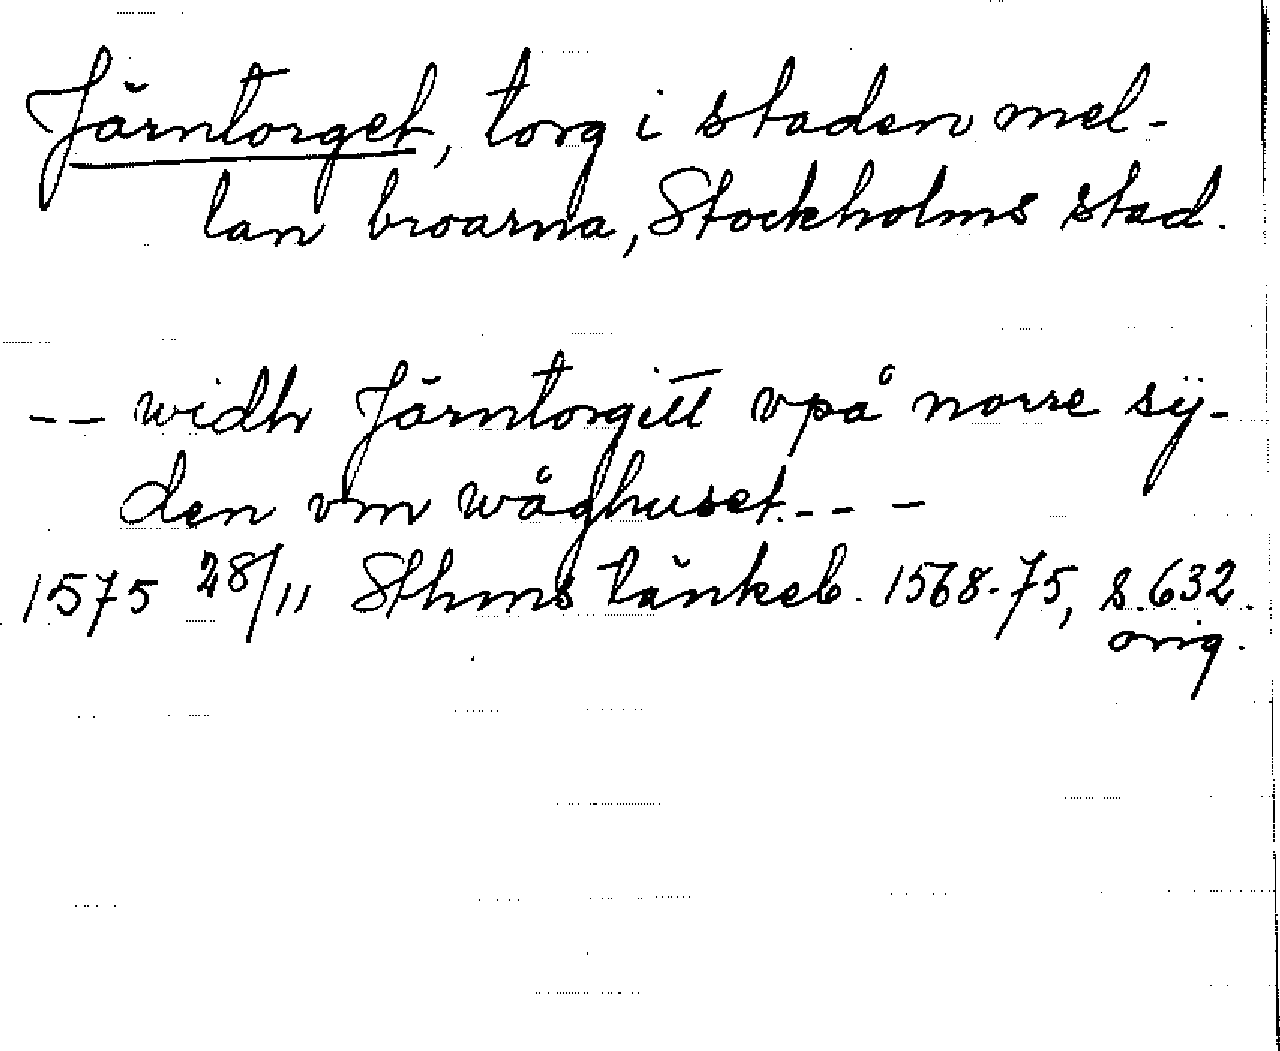 Järntorget, torg i staden mel-
lan broarna, Stockholms stad.
-- widh Järntorgitt vpå norre sÿ-
den vm wåghuset. - - -
1575 28/11 Sthms tänkeb. 1568-75, s. 632.
orig.